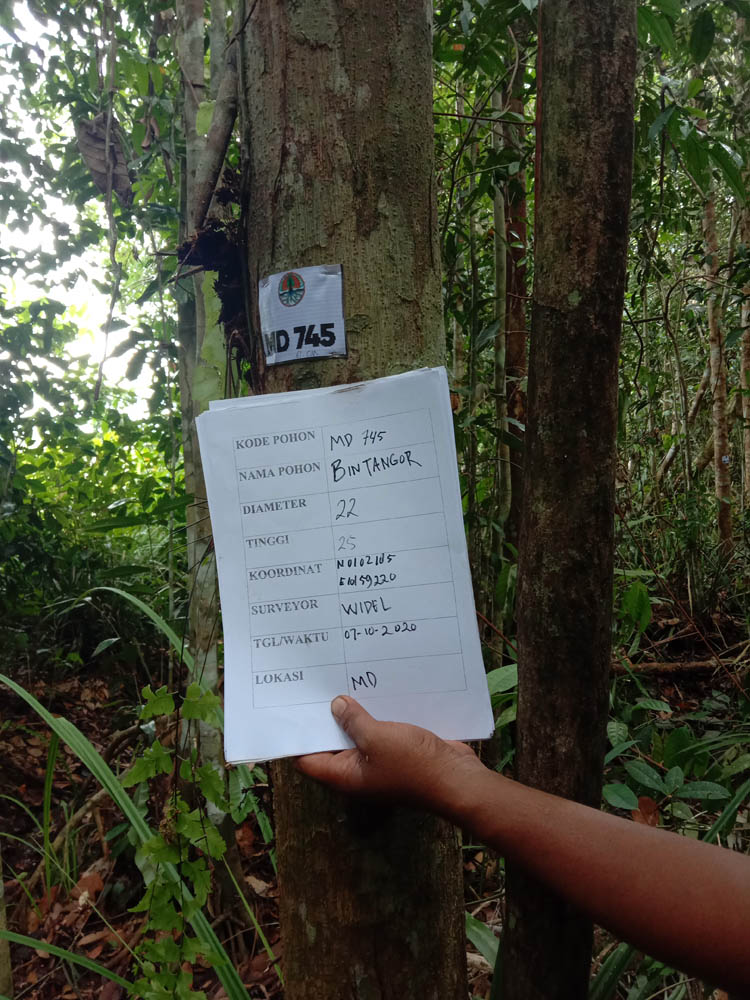 MD 745
KODE POHON MD 745
NAMA POHON BINTANGOR
DIAMETER 22
TINGGI 25
KOORDINAT N0102105
E10159220
SURVEYOR WIDEL
TGL/WAKTU 07-10-2020
LOKASI MD